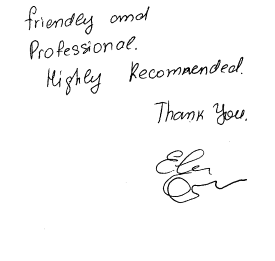 friendly and
Professional.
Highly Recommended.
Thank You.